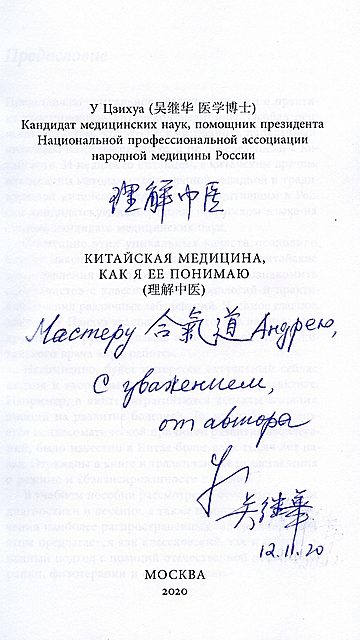 У Цзихуа (吴继华 医学博士)
Кандидат медицинских наук, помощник президента
Национальной профессиональной ассоциации
народной медицины России
理解中医
КИТАЙСКАЯ МЕДИЦИНА,
КАК Я ЕЕ ПОНИМАЮ
(理解中医)
Мастеру 合氣道 Андрею,
с уважением,
от автора
吴继华
12.11.20
МОСКВА
2020